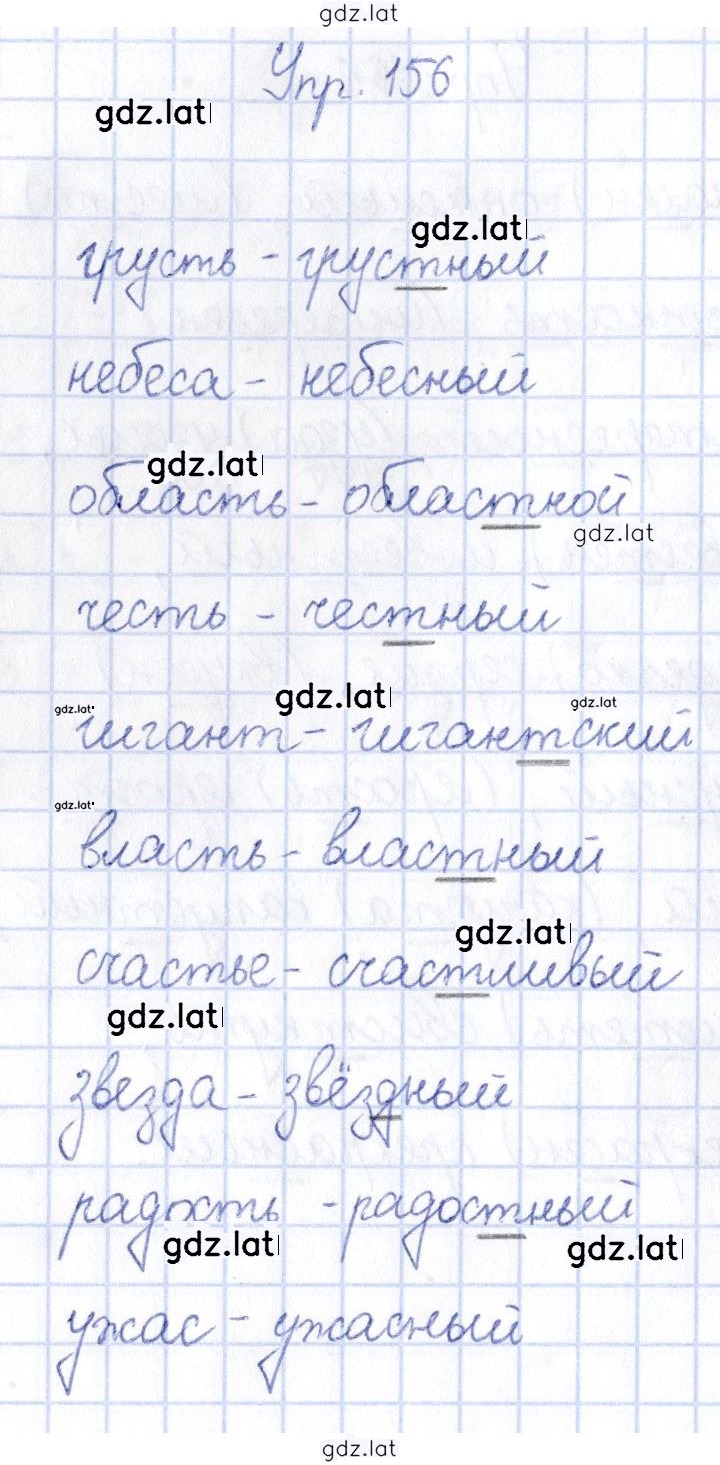 gdz.lat
Упр. 156
gdz.lat
gdz.lat
грусть - грустный
небеса - небесный
gdz.lat
область - областной
gdz.lat
честь - честный
gdz.lat
gdz.lat
gdz.lat
гигант - гигантский
gdz.lat
власть - властный
gdz.lat
счастье - счастливый
gdz.lat
звезда - звёздный
радость - радостный
gdz.lat
gdz.lat
ужас - ужасный
gdz.lat